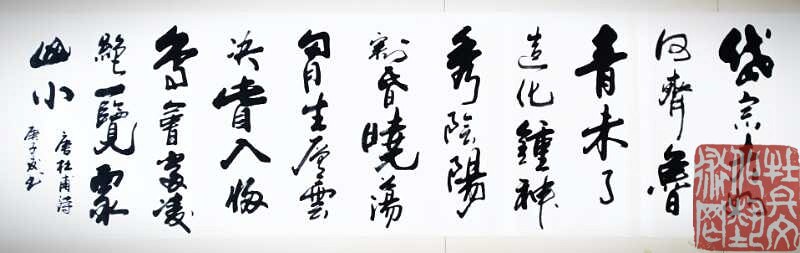 岱宗夫如
何齊魯
青未了
造化鍾神
秀陰陽
割昏曉蕩
胸生層雲
決眥入歸
鳥會當凌
絕一覽眾
山小
唐杜甫詩
庚子
杜兵文
化藝
術網